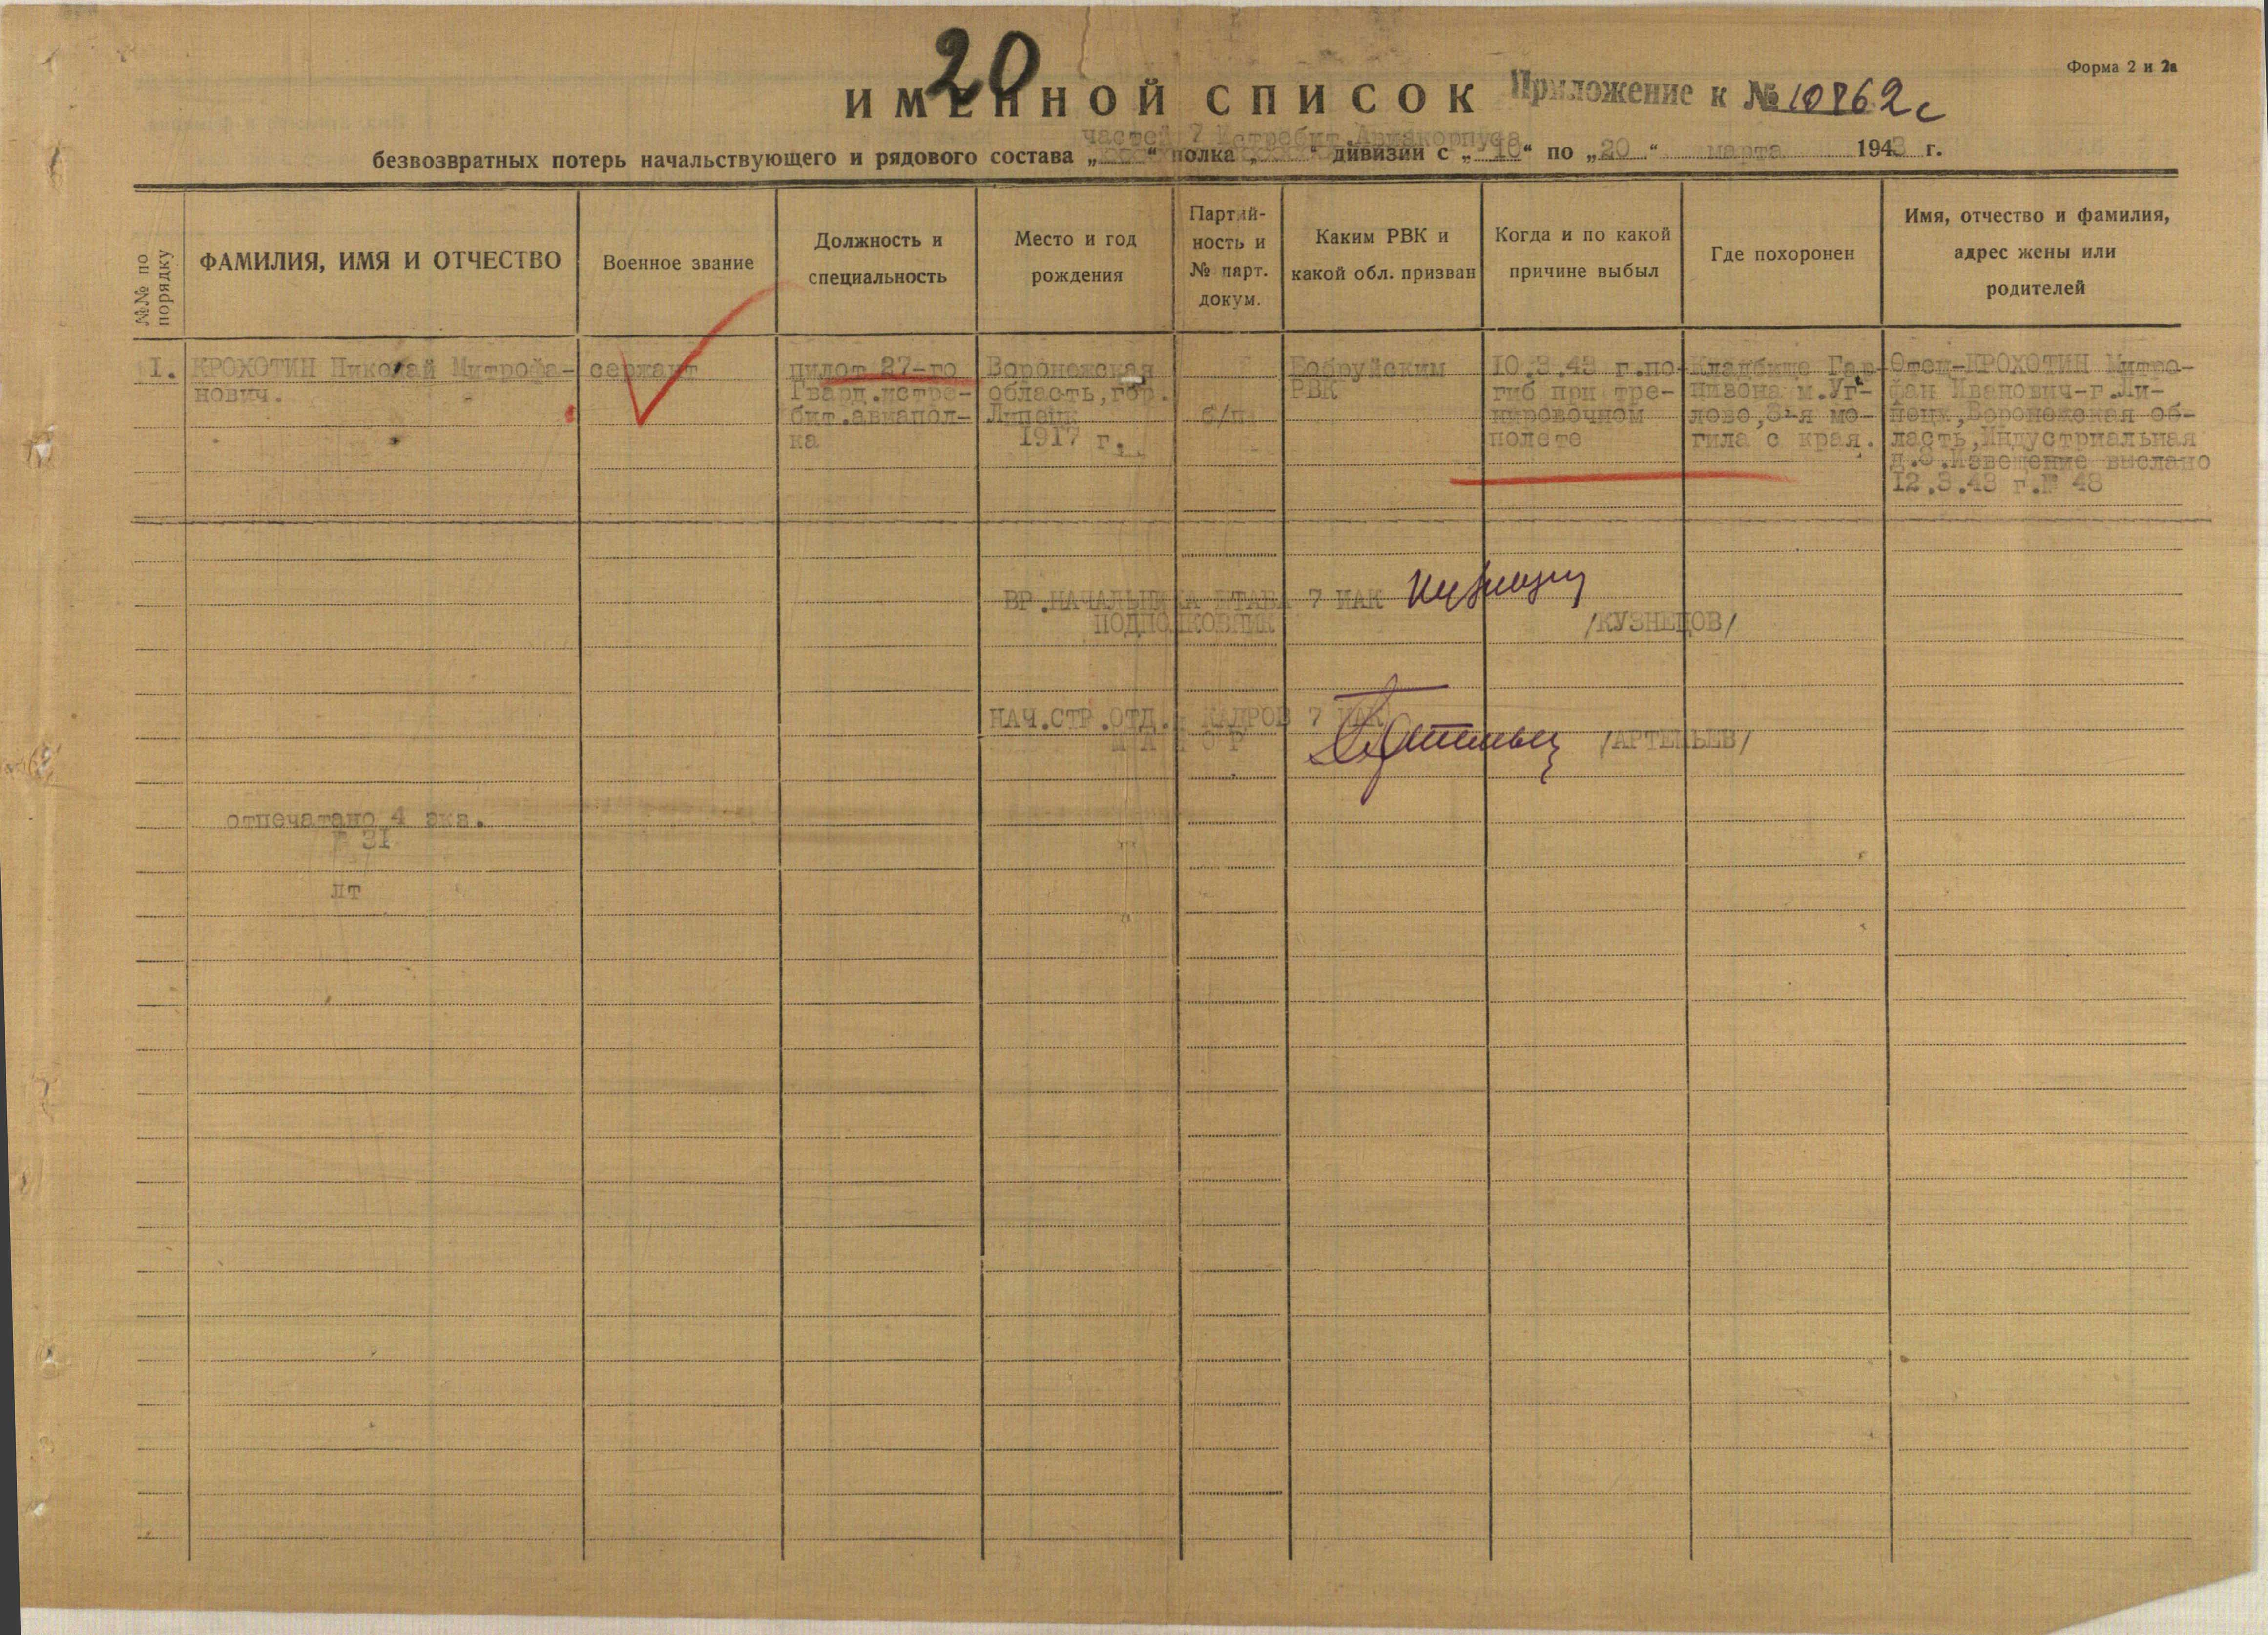 20
Форма 2 и 2а
ИМЕННОЙ СПИСОК Приложение к № 10862с
частей 7 Истребит.Авиакорпуса
безвозвратных потерь начальствующего и рядового состава „ “ полка „ “ дивизии с „10“ по „20“ марта 1943 г.
№№ по порядку
ФАМИЛИЯ, ИМЯ И ОТЧЕСТВО
Военное звание
Должность и
специальность
Место и год
рождения
Партий-
ность и
№ парт.
докум.
Каким РВК и
какой обл. призван
Когда и по какой
причине выбыл
Где похоронен
Имя, отчество и фамилия,
адрес жены или
родителей
I.
КРОХОТИН Николай Митрофа-
нович.
сержант
пилот 27-го
Гвард.истре-
бит.авиапол-
ка
Воронежская
область,гор.
Липецк
1917 г.
б/п
Бобруйским
РВК
10.3.43 г.по-
гиб при тре-
нировочном
полете
Кладбище Гар-
низона м.Уг-
лово,3-я мо-
гила с края.
Отец-КРОХОТИН Митро-
фан Иванович-г.Ли-
пецк,Воронежская об-
ласть,Индустриальная
д.8.Извещение выслано
12.3.43 г.№ 48
ВР.НАЧАЛЬНИКА ШТАБА 7 ИАК
ПОДПОЛКОВНИК /КУЗНЕЦОВ/
НАЧ.СТР.ОТД. КАДРОВ 7 ИАК
МАЙОР /АРТЕМЬЕВ/
отпечатано 4 экз.
№ 31
лт